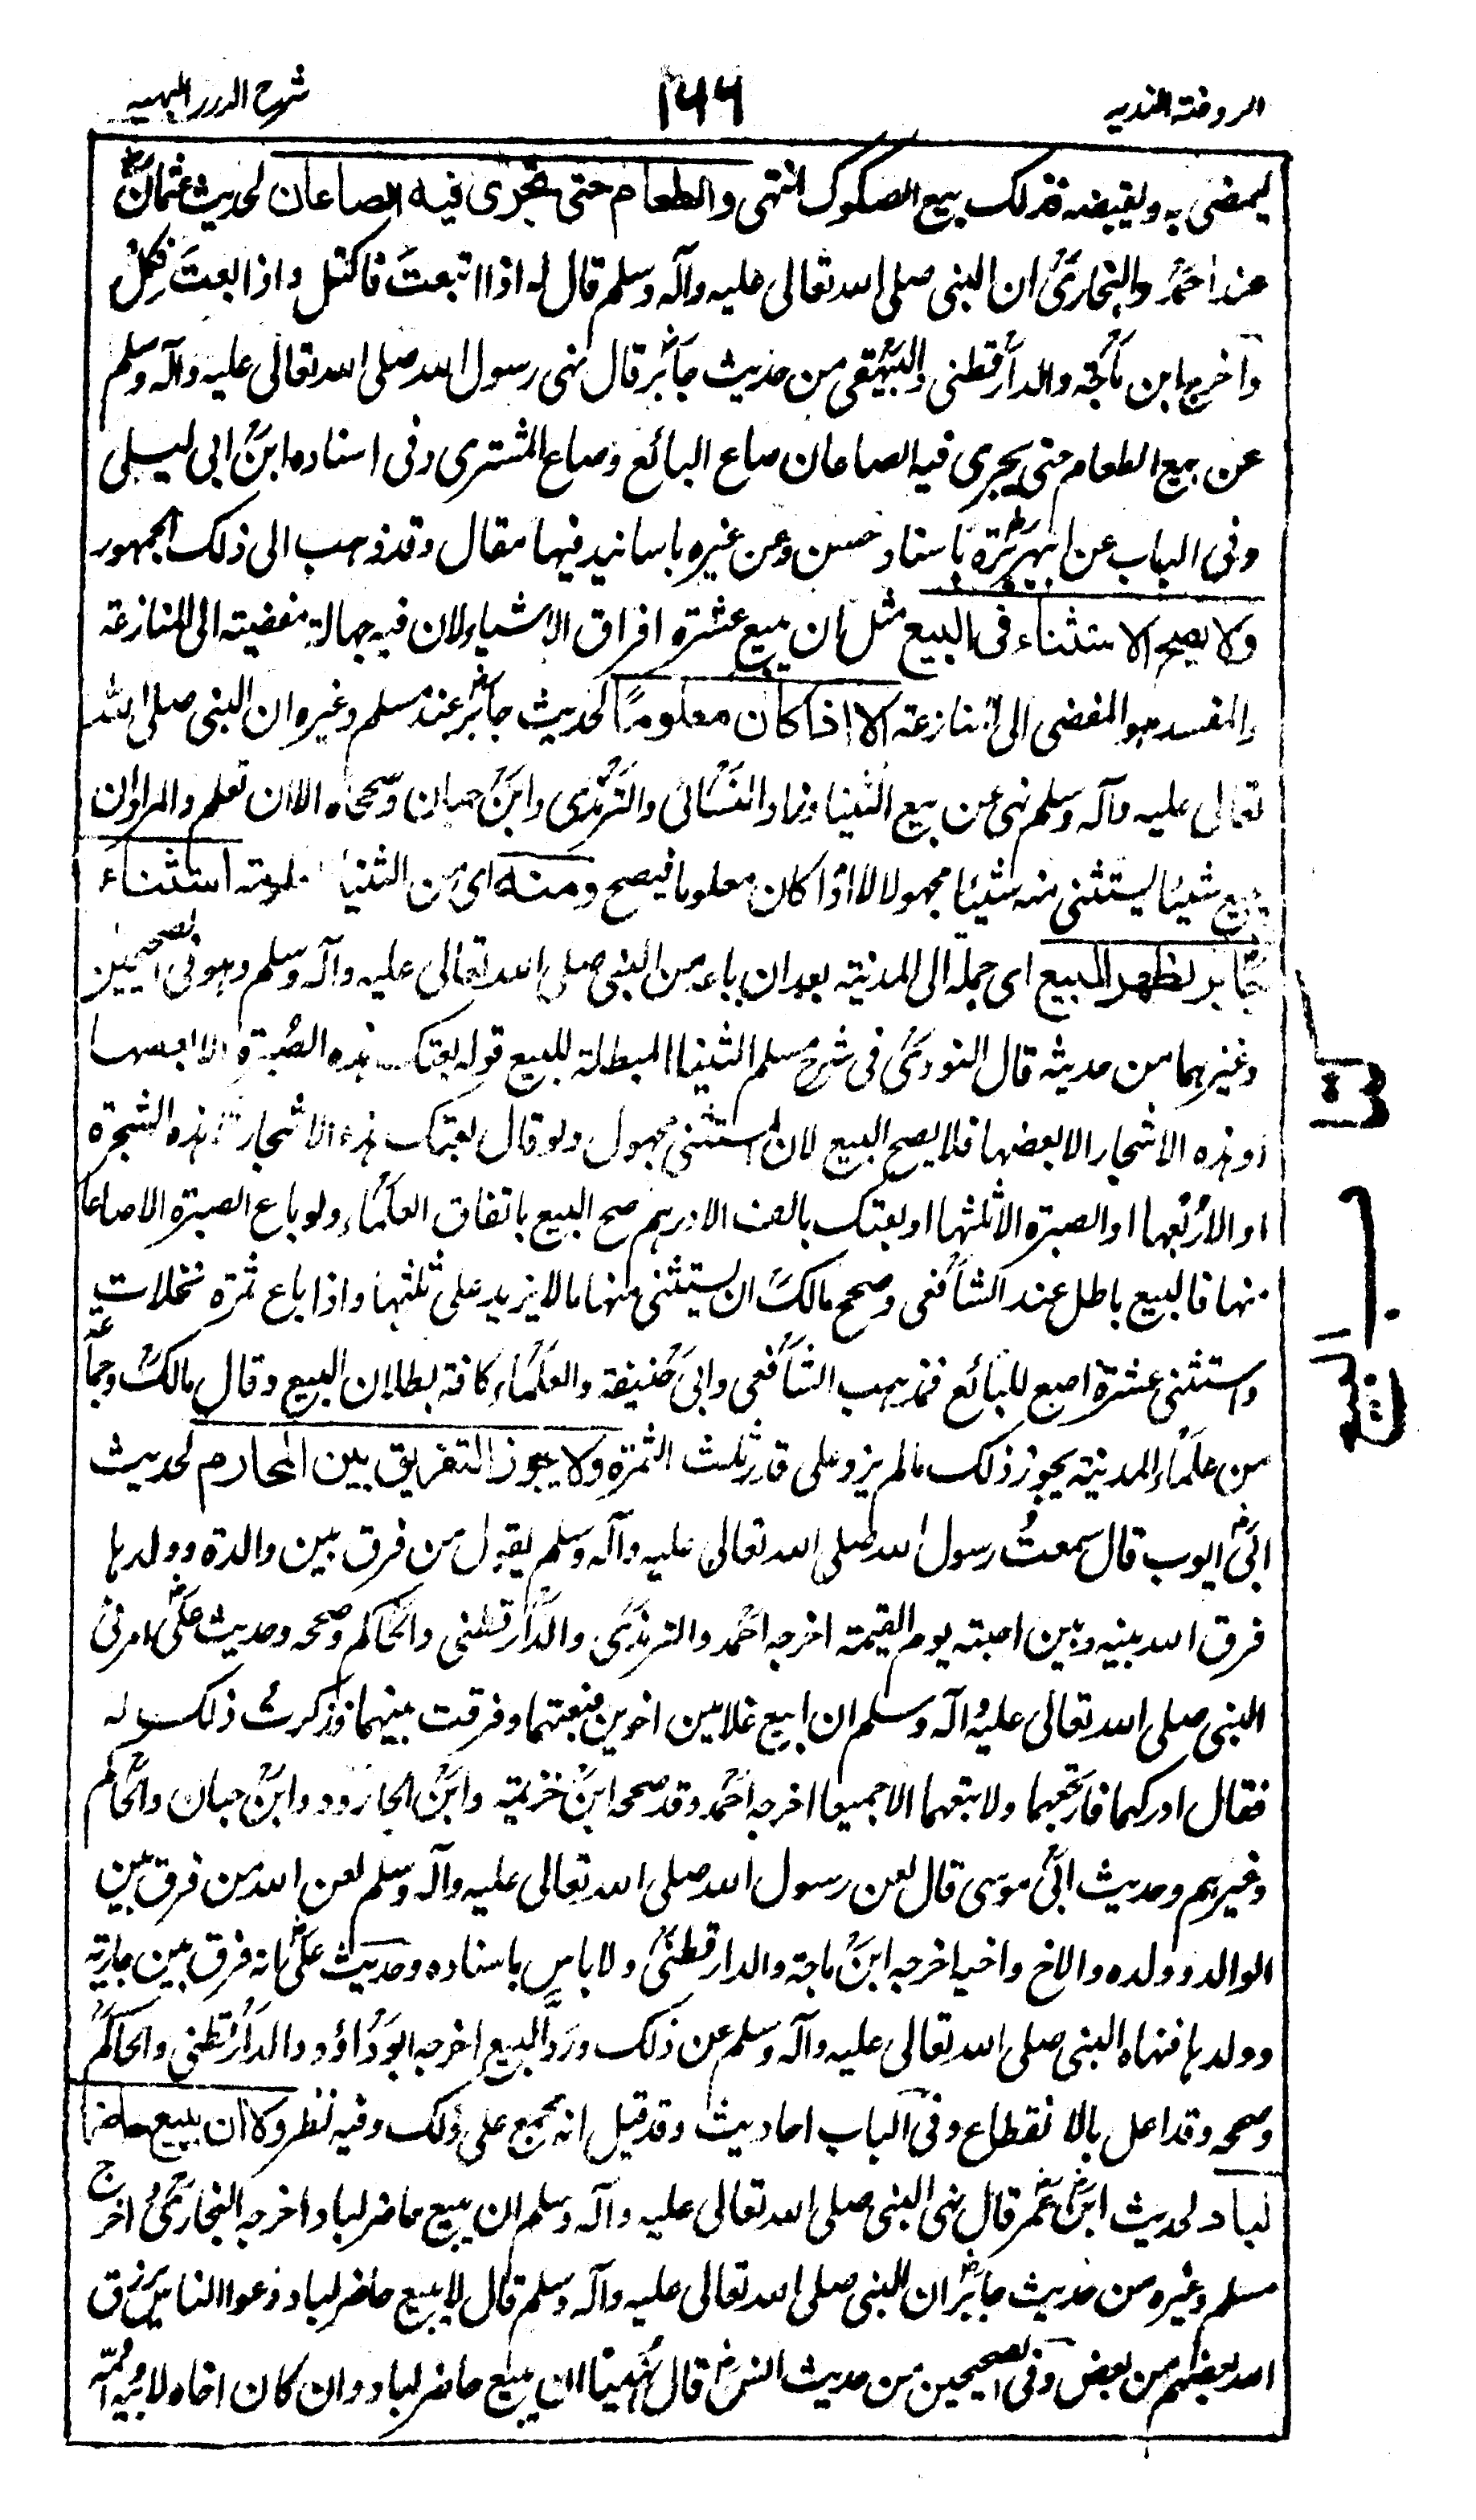 الروضة الندية ٢٦٦ شرح الدرر البهية
ليمضى به وليقبضه فذلك بيع الصكوك انتهى والطعام حتى يجرى فيه الصاعان لحديث عثمانؓ
عند احمدؒ والبخارىؒ ان النبى صلى الله تعالى عليه وآله وسلم قال له اذا ابتعتَ فاكتل واذا بعتَ فكِلْ
وآخرج ابن ماجة والدارقطنى والبيهقى من حديث جابرؓ قال نهى رسول الله صلى الله تعالى عليه وآله وسلم
عن بيع الطعام حتى يجرى فيه الصاعان صاع البائع وصاع المشترى وفى اسناده ابن ابى ليلى
وفى الباب عن ابى هريرةؓ باسناد حسن وعن غيره باسانيد فيها مقال وقد ذهب الى ذلك الجمهور
ولا يصح الاستثناء فى البيع مثل ان يبيع عشرة افراق الا شيئا لان فيه جهالة مفضية الى المنازعة
والمفسد هو المفضى الى المنازعة الا اذا كان معلومًا لحديث جابرؓ عند مسلم وغيره ان النبى صلى الله
تعالى عليه وآله وسلم نهى عن بيع الثنيا وزاد النسائى والترمذى وابن حبان وصححاه الا ان تعلم والمراد ان
يبيع شيئا يستثنى منه شيئا مجهولا لا اذا كان معلوما فيصح ومنه اى من الثنيا المعلومة استثناء
جابر لظهر المبيع اى جمله الى المدنية بعد ان باعه من النبى صلى الله تعالى عليه وآله وسلم وهو فى الصحيحين
وغيرهما من حديثه قال النووىؒ فى شرح مسلم الثنيا المبطلة للبيع قوله بعتك هذه الصُبرة الا بعضها
او هذه الاشجار الا بعضها فلا يصح البيع لان المستثنى مجهول ولو قال بعتك هذه الاشجار الا هذه الشجرة
او الا ربعها او الصبرة الا ثلثها او بعتك بالف الا درهم صح البيع باتفاق العلماء ولو باع الصبرة الا صاعا
منها فالبيع باطل عند الشافعى وصحح مالكؒ ان يستثنى منها ما لا يزيد على ثلثها واذا باع ثمرة نخلات
واستثنى عشرة اصع للبائع فمذهب الشافعى وابى حنيفة والعلماء كافة بطلان البيع وقال مالكؒ وجماعة
من علماء المدنية يجوز ذلك مالم يزد على قدر ثلث الثمرة ولا يجوز التفريق بين المحارم لحديث
ابىؓ ايوب قال سمعتُ رسول الله صلى الله تعالى عليه وآله وسلم يقول من فرق بين والدة وولدها
فرق الله بينه وبين احبته يوم القيمة اخرجه احمد والترمذىؒ والدارقطنى والحاكم وصححه وحديث علىؓ امرنى
النبى صلى الله تعالى عليه وآله وسلم ان ابيع غلامين اخوين فبعتهما وفرقت بينهما فذكرت ذلك له
فقال ادركهما فارتجعهما ولا تبعهما الا جميعا اخرجه احمد وقد صححه ابن خزيمة وابن الجارود وابن حبان والحاكم
وغيرهم وحديث ابىؓ موسى قال لعن رسول الله صلى الله تعالى عليه وآله وسلم لعن الله من فرق بين
الوالد وولده والاخ واخيه اخرجه ابن ماجة والدارقطنىؒ ولا باس باسناده وحديث علىؓ انه فرق بين جارية
وولدها فنهاه النبى صلى الله تعالى عليه وآله وسلم عن ذلك وردَّ البيع اخرجه ابو داؤد والدارقطنى والحاكم
وصححه وقد اعل بالانقطاع وفى الباب احاديث وقد قيل انه مجمع على ذلك وفيه نظر ولا ان يبيع حاضر
لباد لحديث ابن عمرؓ قال نهى النبى صلى الله تعالى عليه وآله وسلم ان يبيع حاضر لباد اخرجه البخارىؒ واخرج
مسلم وغيره من حديث جابرؓ ان النبى صلى الله تعالى عليه وآله وسلم قال لا يبيع حاضر لباد دعوا الناس يرزق
الله بعضهم من بعض وفى الصحيحين من حديث انسؓ قال نُهينا ان يبيع حاضر لباد وان كان اخاه لابيه وامه